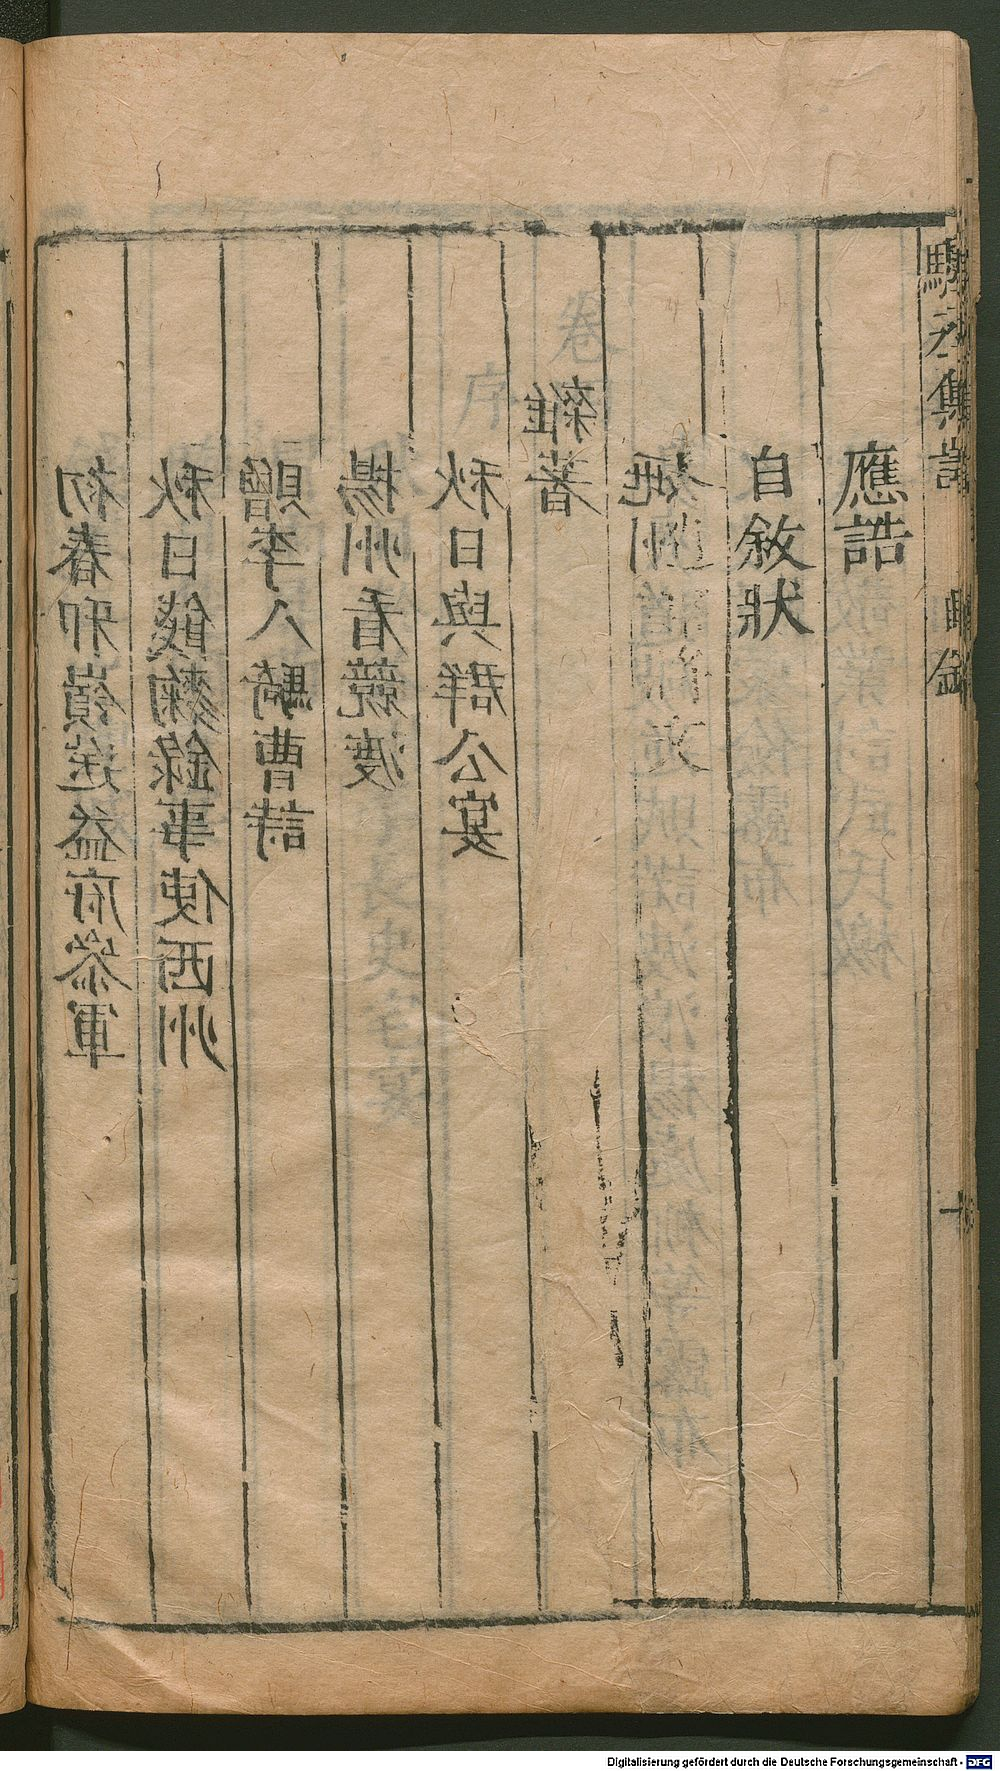 駱丞集註 目錄
應詰
自敘狀
姚州道 文
雜著
秋日與群公宴
揚州看競渡
贈李八騎曹詩
秋日餞麴錄事使西州
初春邪嶺送益府叅軍
Digitalisierung gefördert durch die Deutsche Forschungsgemeinschaft - DFG